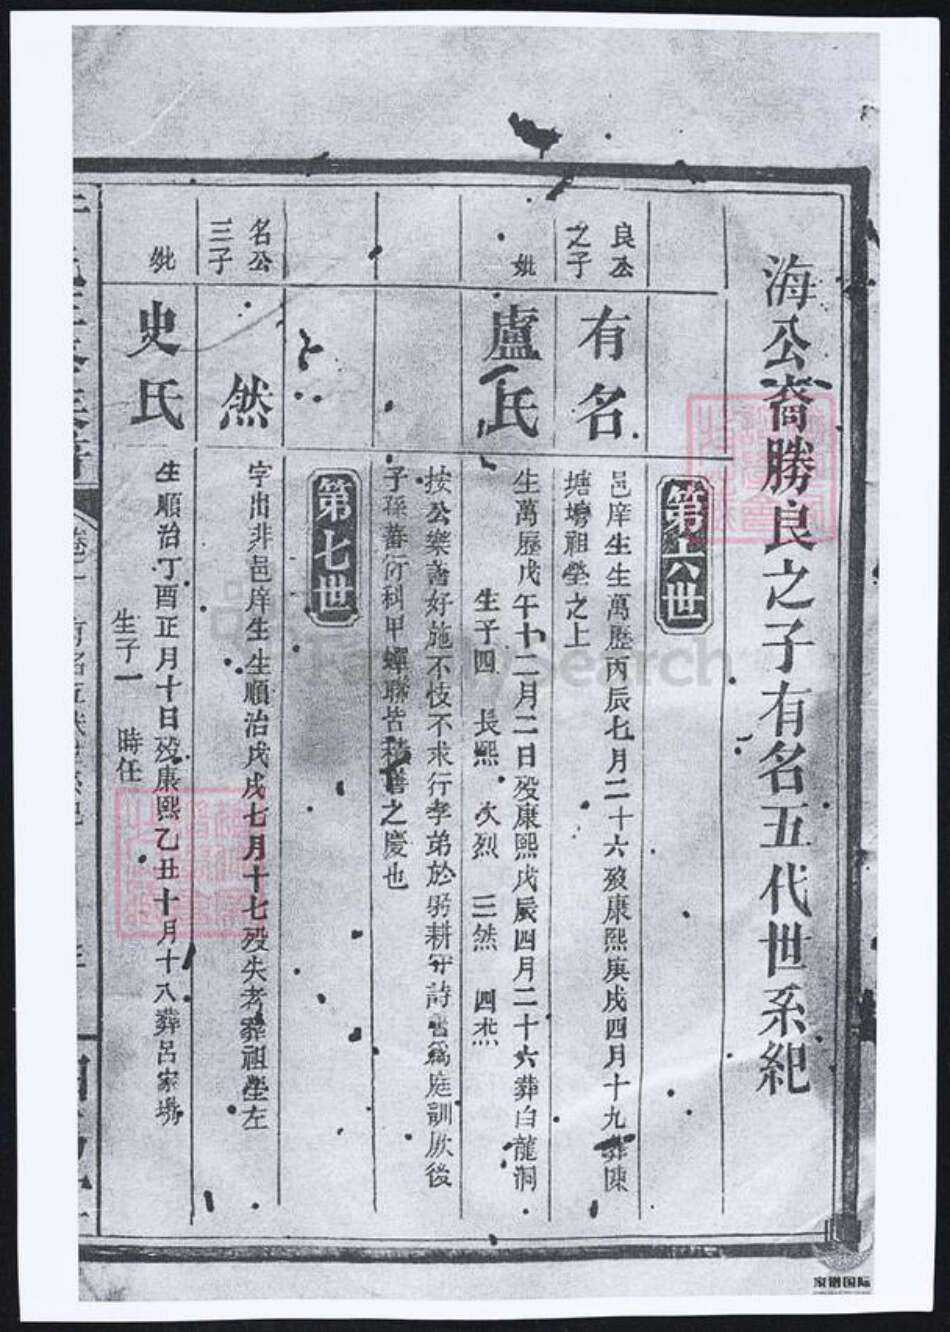 海公裔勝良之子有名五代世系紀
第六世
良公之子
有名
邑庠生生萬歷丙辰七月二十六歿康熙庚戌四月十九葬陳
塘塆祖塋之上
妣
盧氏
生萬歷戊午十二月二日歿康熙戊辰四月二十六葬白龍洞
生子四 長熙 次烈 三然 四杰
按公樂善好施不忮不求行孝弟於躬耕守詩書為庭訓厥後
子孫蕃衍科甲蟬聯皆積善之慶也
第七世
名公三子
然
字出非邑庠生生順治戊戌七月十七歿失考葬祖塋左
妣
史氏
生順治丁酉正月十日歿康熙乙丑十月十八葬呂家塆
生子一 時任
家譜国际
FamilySearch